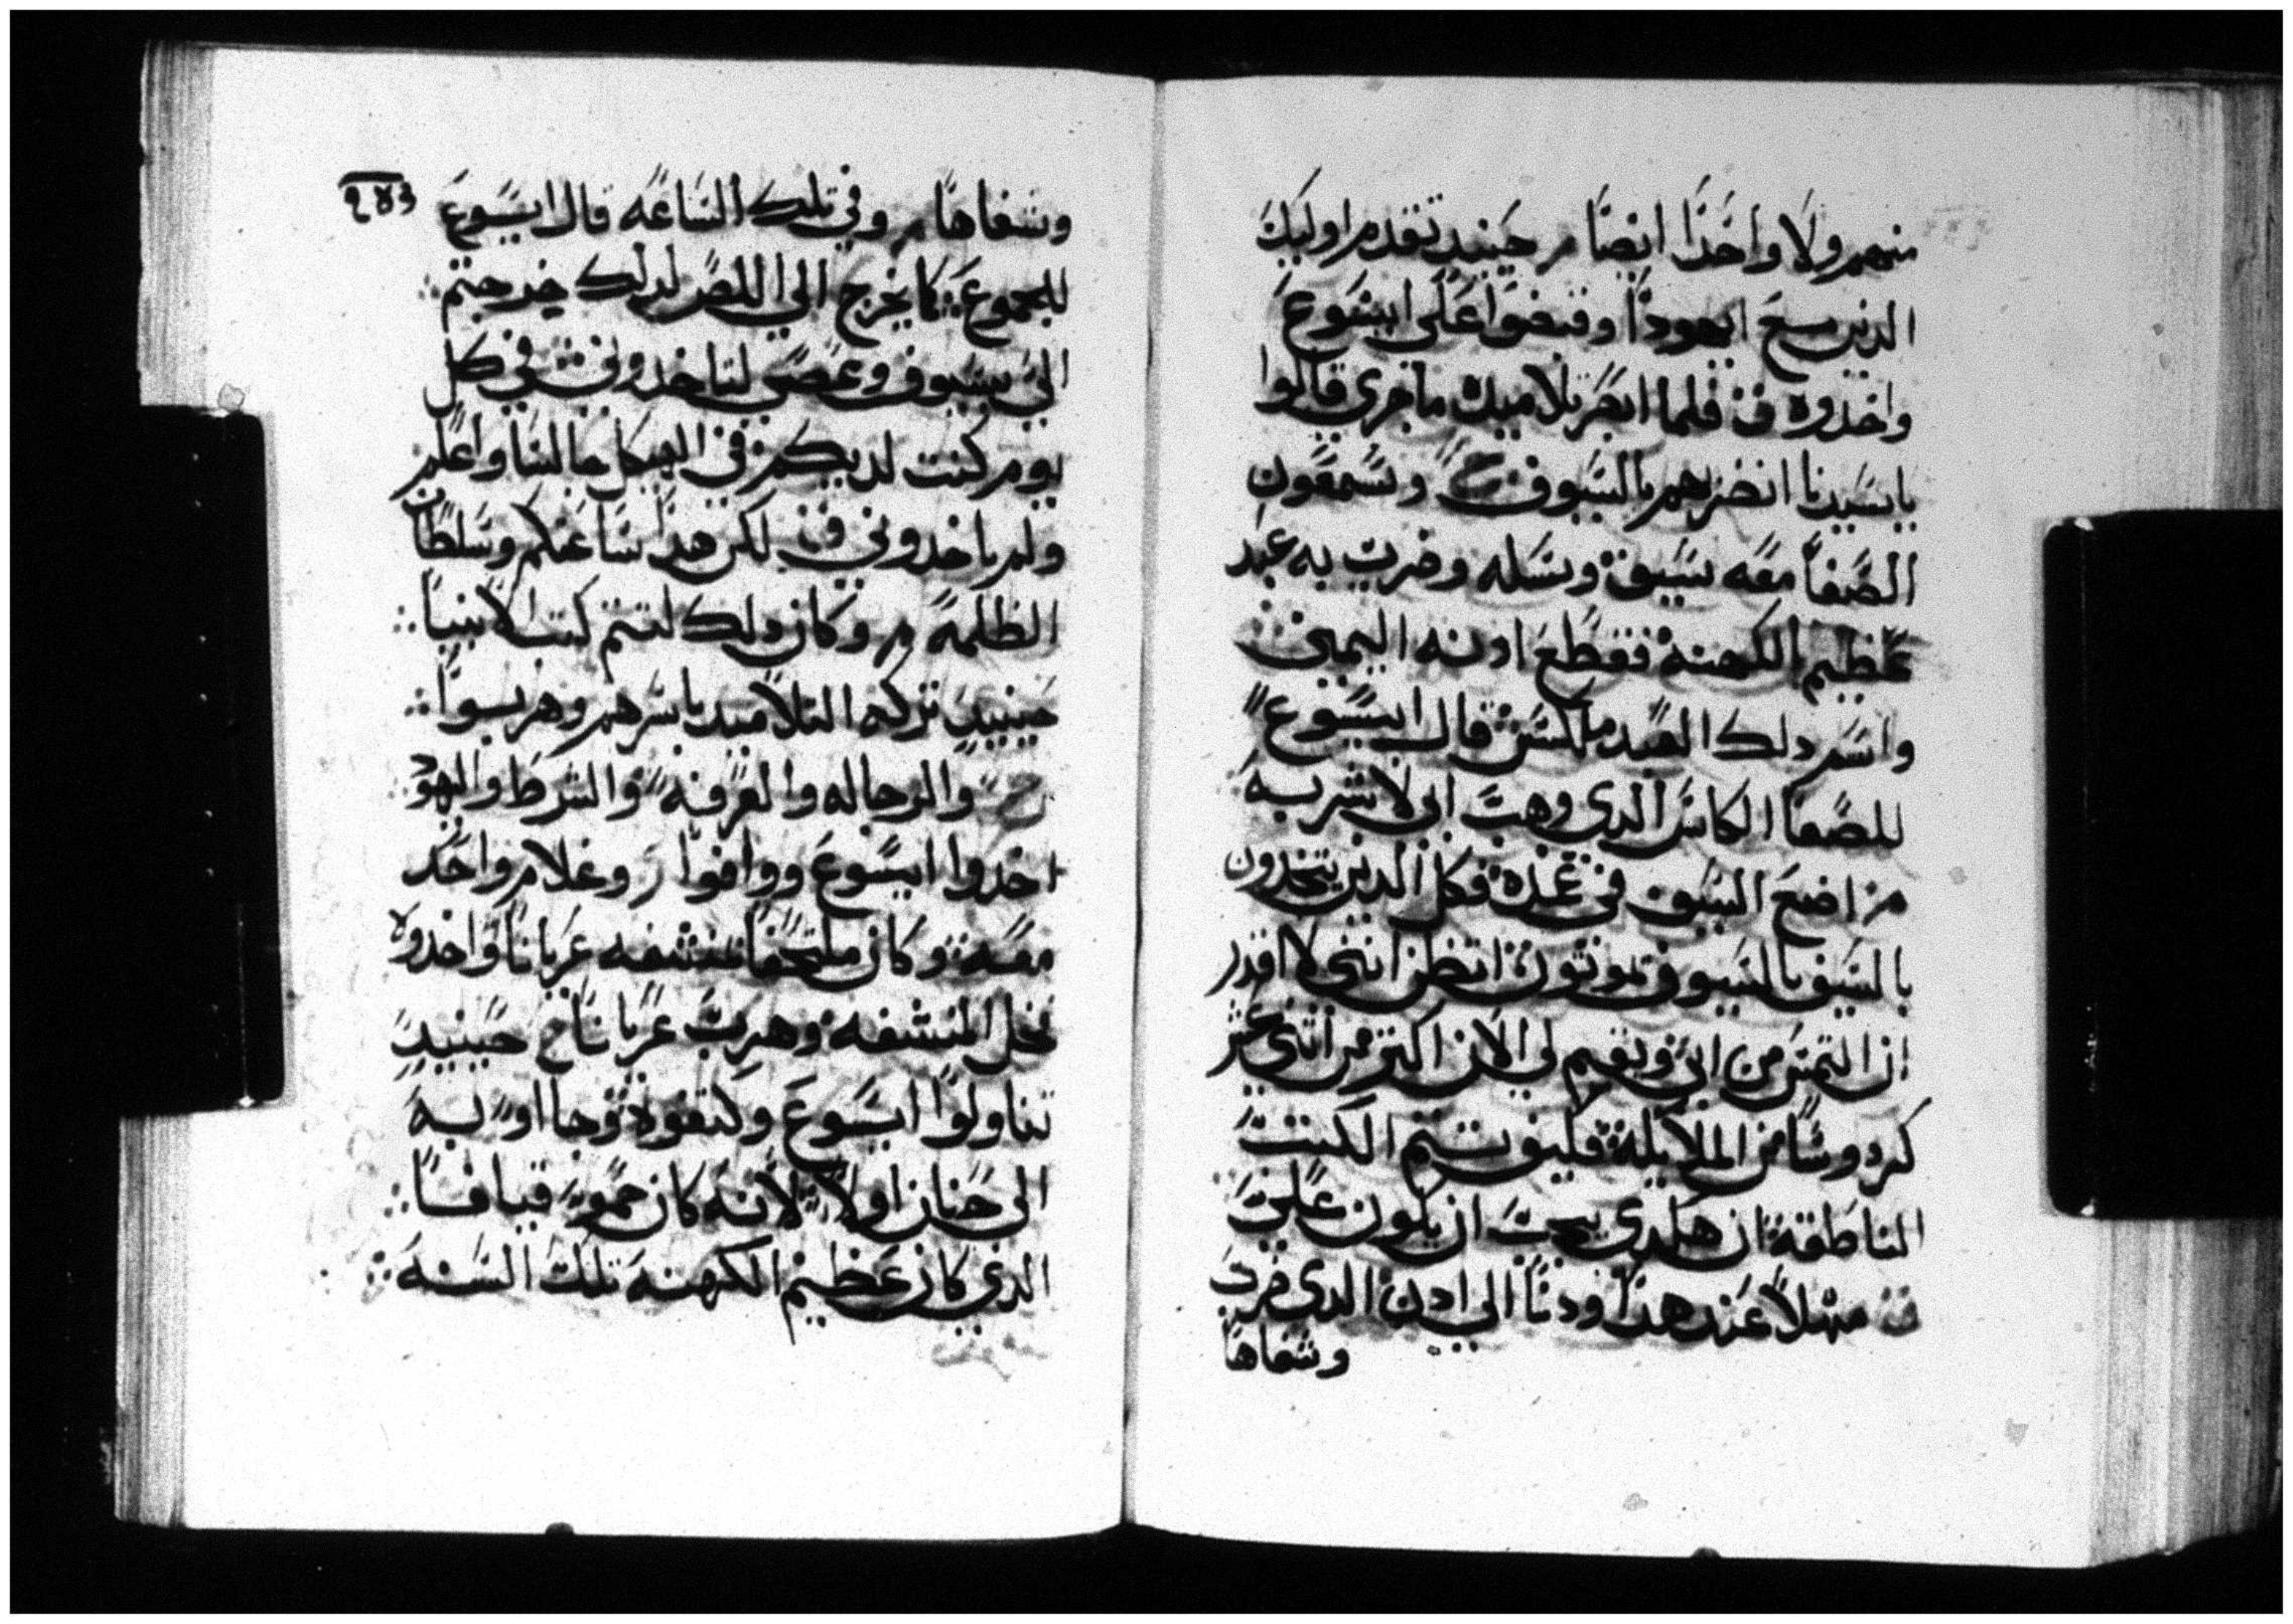 منهم ولا واحدًا ايضًا م حينيد تقدم اوليك
الدين مع ايهودا وقبضوا على ايسوع
واخدوه فلما ابصر تلاميده ما جرى قالوا
يا سيدنا انضربهم بالسيوف ح وسمعون
الصفا معه سيف وسله وضرب به عبد
عظيم الكهنة فقطع ادنه اليمين
واسم دلك العبد ملكس قال ايسوع
للصفا الكاس الدي وهب ابي لا شربه
م اضع السيف في غمده فكل الدين يتخدون
بالسيف بالسيوف يموتون اتظن انني لا اقدر
ان التمس من ابي ويقيم لي الان اكتر من اتني عشر
كردوسًا من الملايكة فكيف تتم الكتب
الناطقة ان هكدى يجب ان يكون
مهلاً عند هدا ودنا الى ادن الدي ضرب
وشفاها
وشفاها م وفي تلك الساعه قال ايسوع
للجموع كما يخرج الى اللص لدلك خرجتم
الي بسيوف وعصي لتاخدوني في كل
يوم كنت لديكم في الهيكل جالسا واعلم
ولم تاخدوني لكن هدا ساعتكم وسلطان
الظلمة م وكان دلك لتتم كتب الانبيا
حينيد تركه التلاميد باسرهم وهربوا
والرجاله والعرفه والشرط واليهود
اخدوا ايسوع ووافوا ر وغلام واحد
معه وكان ملتحفًا منشفه عريانًا واخدوه
فخل المنشفه وهرب عريانًا ح حينيد
تناولوا ايسوع وكتفوه وجااو به
الى حنان اولاً لانه كان حمو قيافا
الدي كان عظيم الكهنة تلك السنة